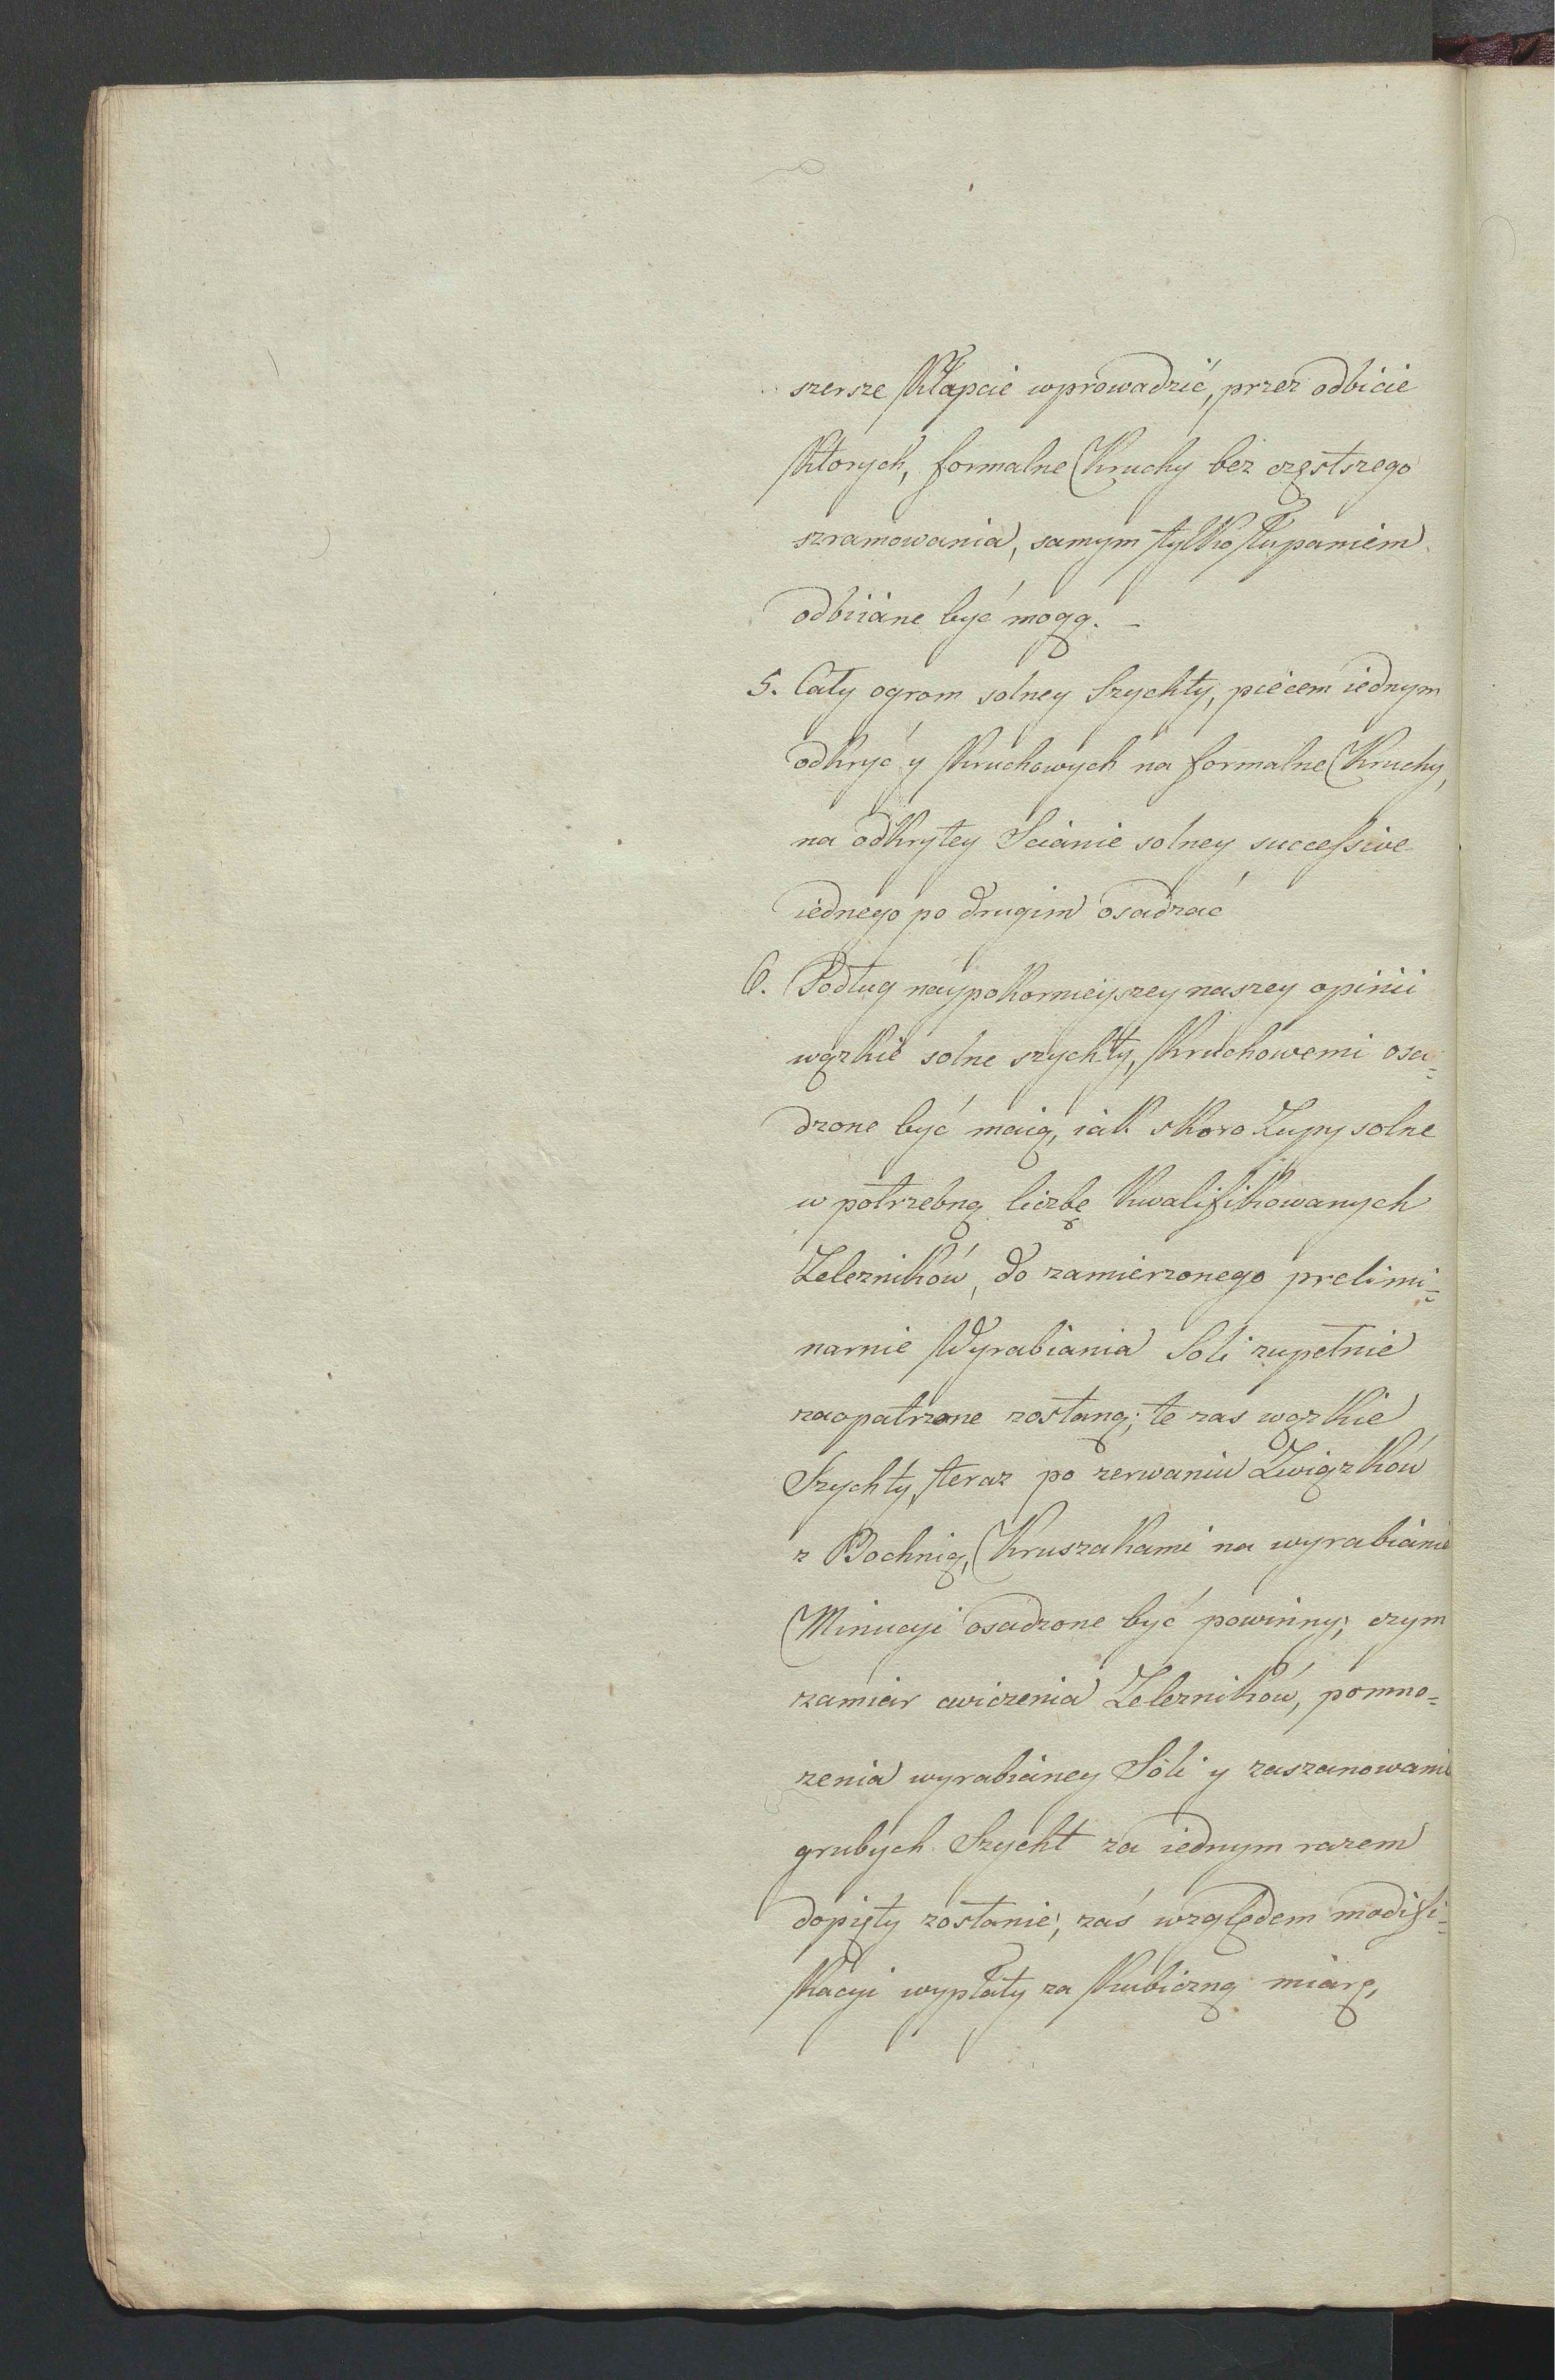 szersze Kłapcie wprowadzić, przez odbicie
Ktorych, formalne Kruchy bez częstszego
szramowania, samym tylko łupaniem
odbiiane być mogą. –
5. Cały ogrom solney Szychty, piecem iednym
odkryć y Kruchowych na formalne Kruchy,
na odkrytey Scianie solney successive
iednego po drugim osadzać
6. Podług naypokornieyszey naszey opinii
wązkie solne szychty, Kruchowemi osa=
dzone być maią, iak skoro Zupy solne
w potrzebną liczbę Kwalifikowanych
Zelezników, do zamierzonego prelimi=
narnie Wyrabiania Soli zupełnie
zaopatrzone zostaną; te zas wązkie
Szychty, teraz po zerwaniu Związków
z Bochnią, Kruszakami na wyrabianie
Minucyi osadzone być powinny; czym
zamiar cwiczenia Zelezników, pomno=
zenia wyrabianey Soli y zaszanowania
grubych Szycht za iednym razem
dopięty zostanie; zaś względem modifi=
Kacyi wypłaty za Kubiczną miarę,